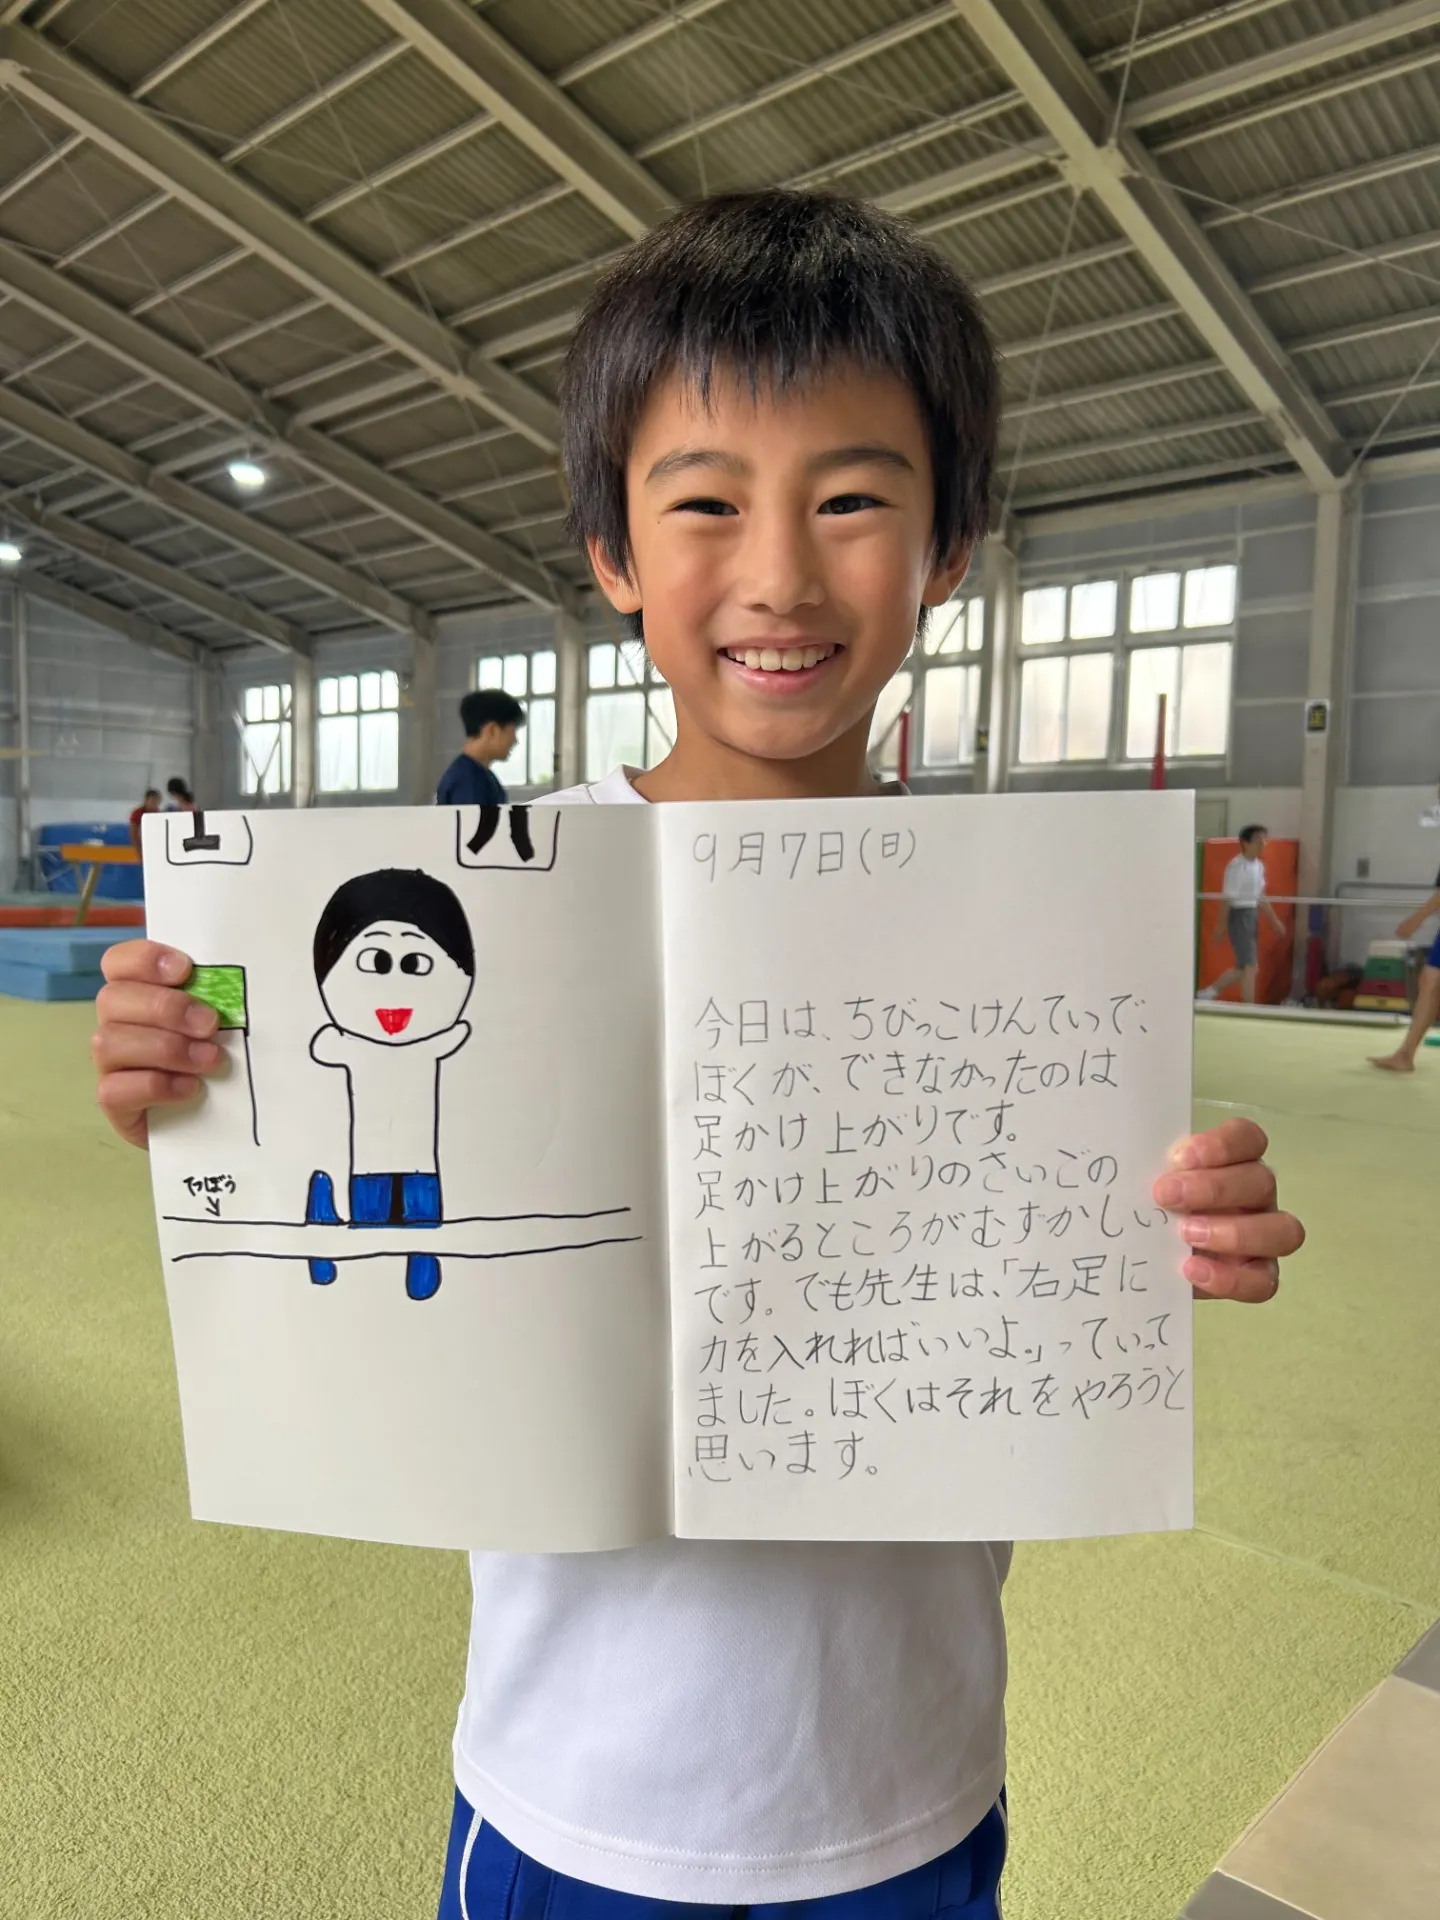 てつぼう
9月7日(日)
今日は、ちびっこけんていで、
ぼくが、できなかったのは
足かけ上がりです。
足かけ上がりのさいごの
上がるところがむずかしい
です。でも先生は、「右足に
力を入れればいいよ。」っていって
ました。ぼくはそれをやろうと
思います。